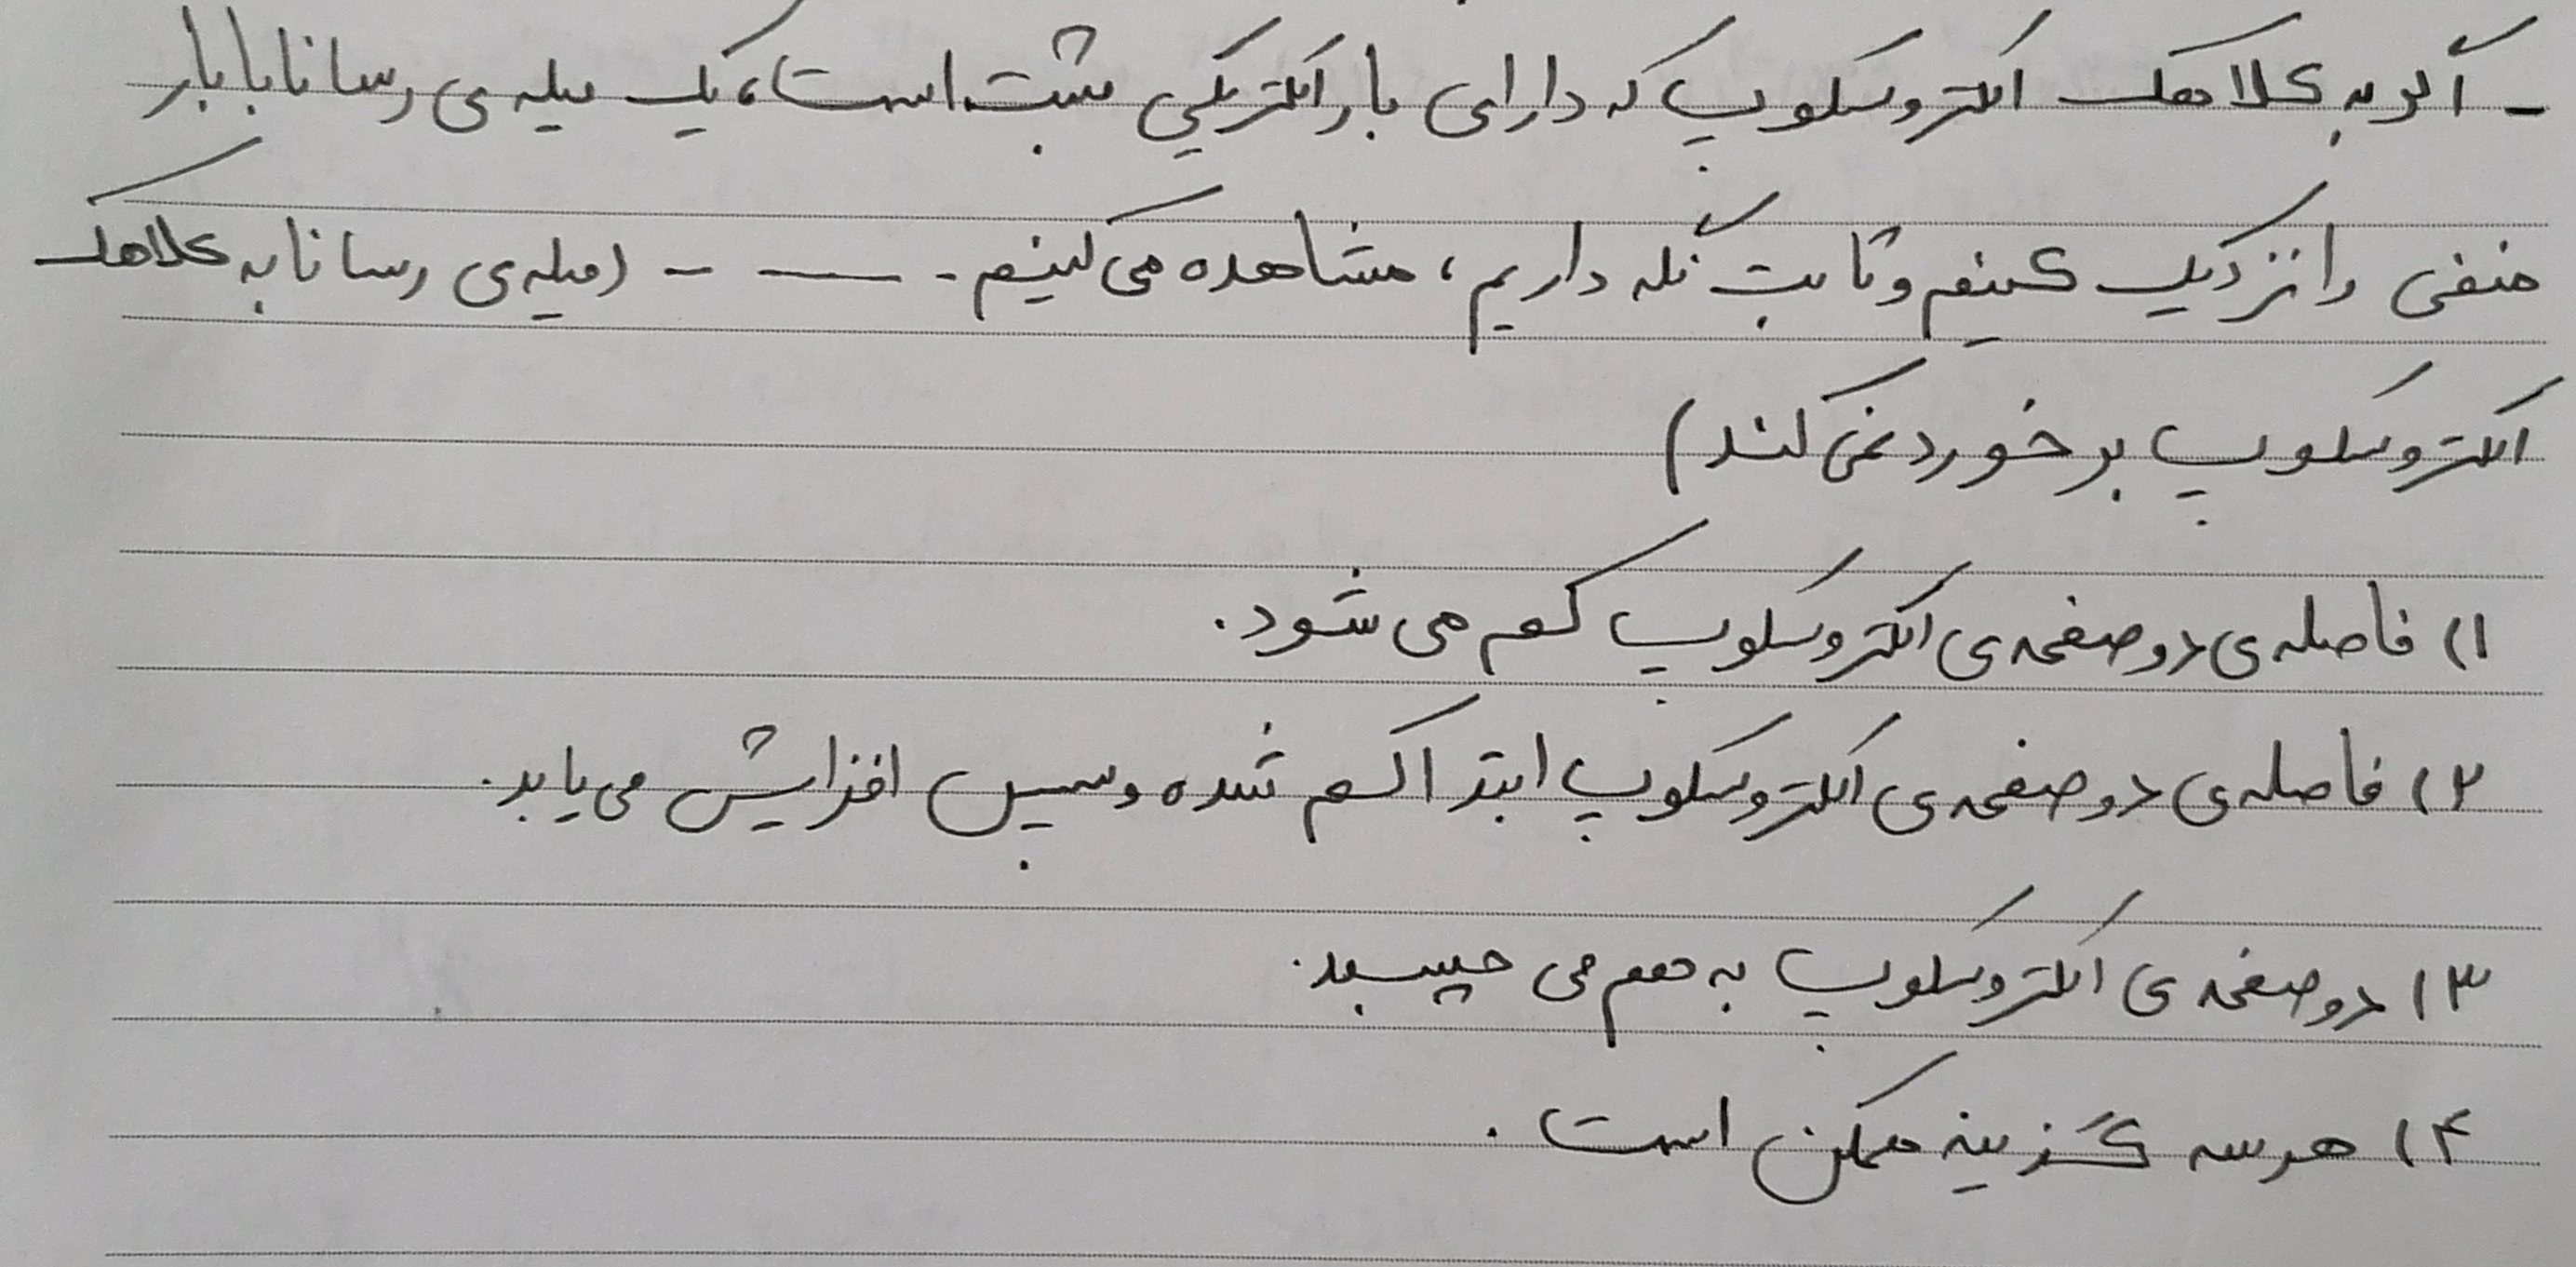 - اگر به کلاهک الکتروسکوپی که دارای بار الکتریکی مثبت است، یک میله‌ی رسانا با بار
منفی را نزدیک کنیم و ثابت نگه داریم، مشاهده می‌کنیم - — - - (میله‌ی رسانا به کلاهک
الکتروسکوپ برخورد نمی‌کند)
۱) فاصله‌ی دو صفحه‌ی الکتروسکوپ کم می‌شود.
۲) فاصله‌ی دو صفحه‌ی الکتروسکوپ ابتدا کم شده و سپس افزایش می‌یابد.
۳) دو صفحه‌ی الکتروسکوپ به هم می‌چسبد.
۴) هر سه گزینه ممکن است.